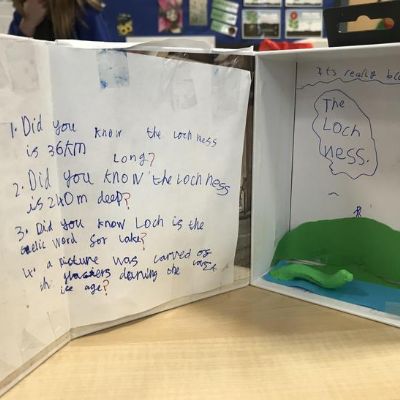 1. Did you know the loch ness
is 36km
long?
2. Did you know the Loch ness
is 240m deep?
3. Did you know Loch is the
word for lake?
4. a picture was carved
in the
ice age?
Its really
The
Loch
ness.